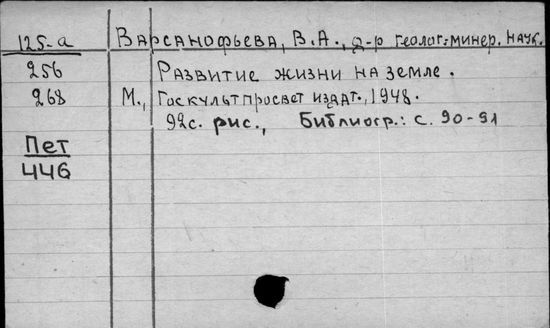 125-а Варсанофьева, В.А., д-р геолог.-минер. наук.
256 Развитие жизни на земле.
268 М., Госкультпросвет издат., 1948.
92с. рис., Библиогр.: с. 90-91
Пет
446